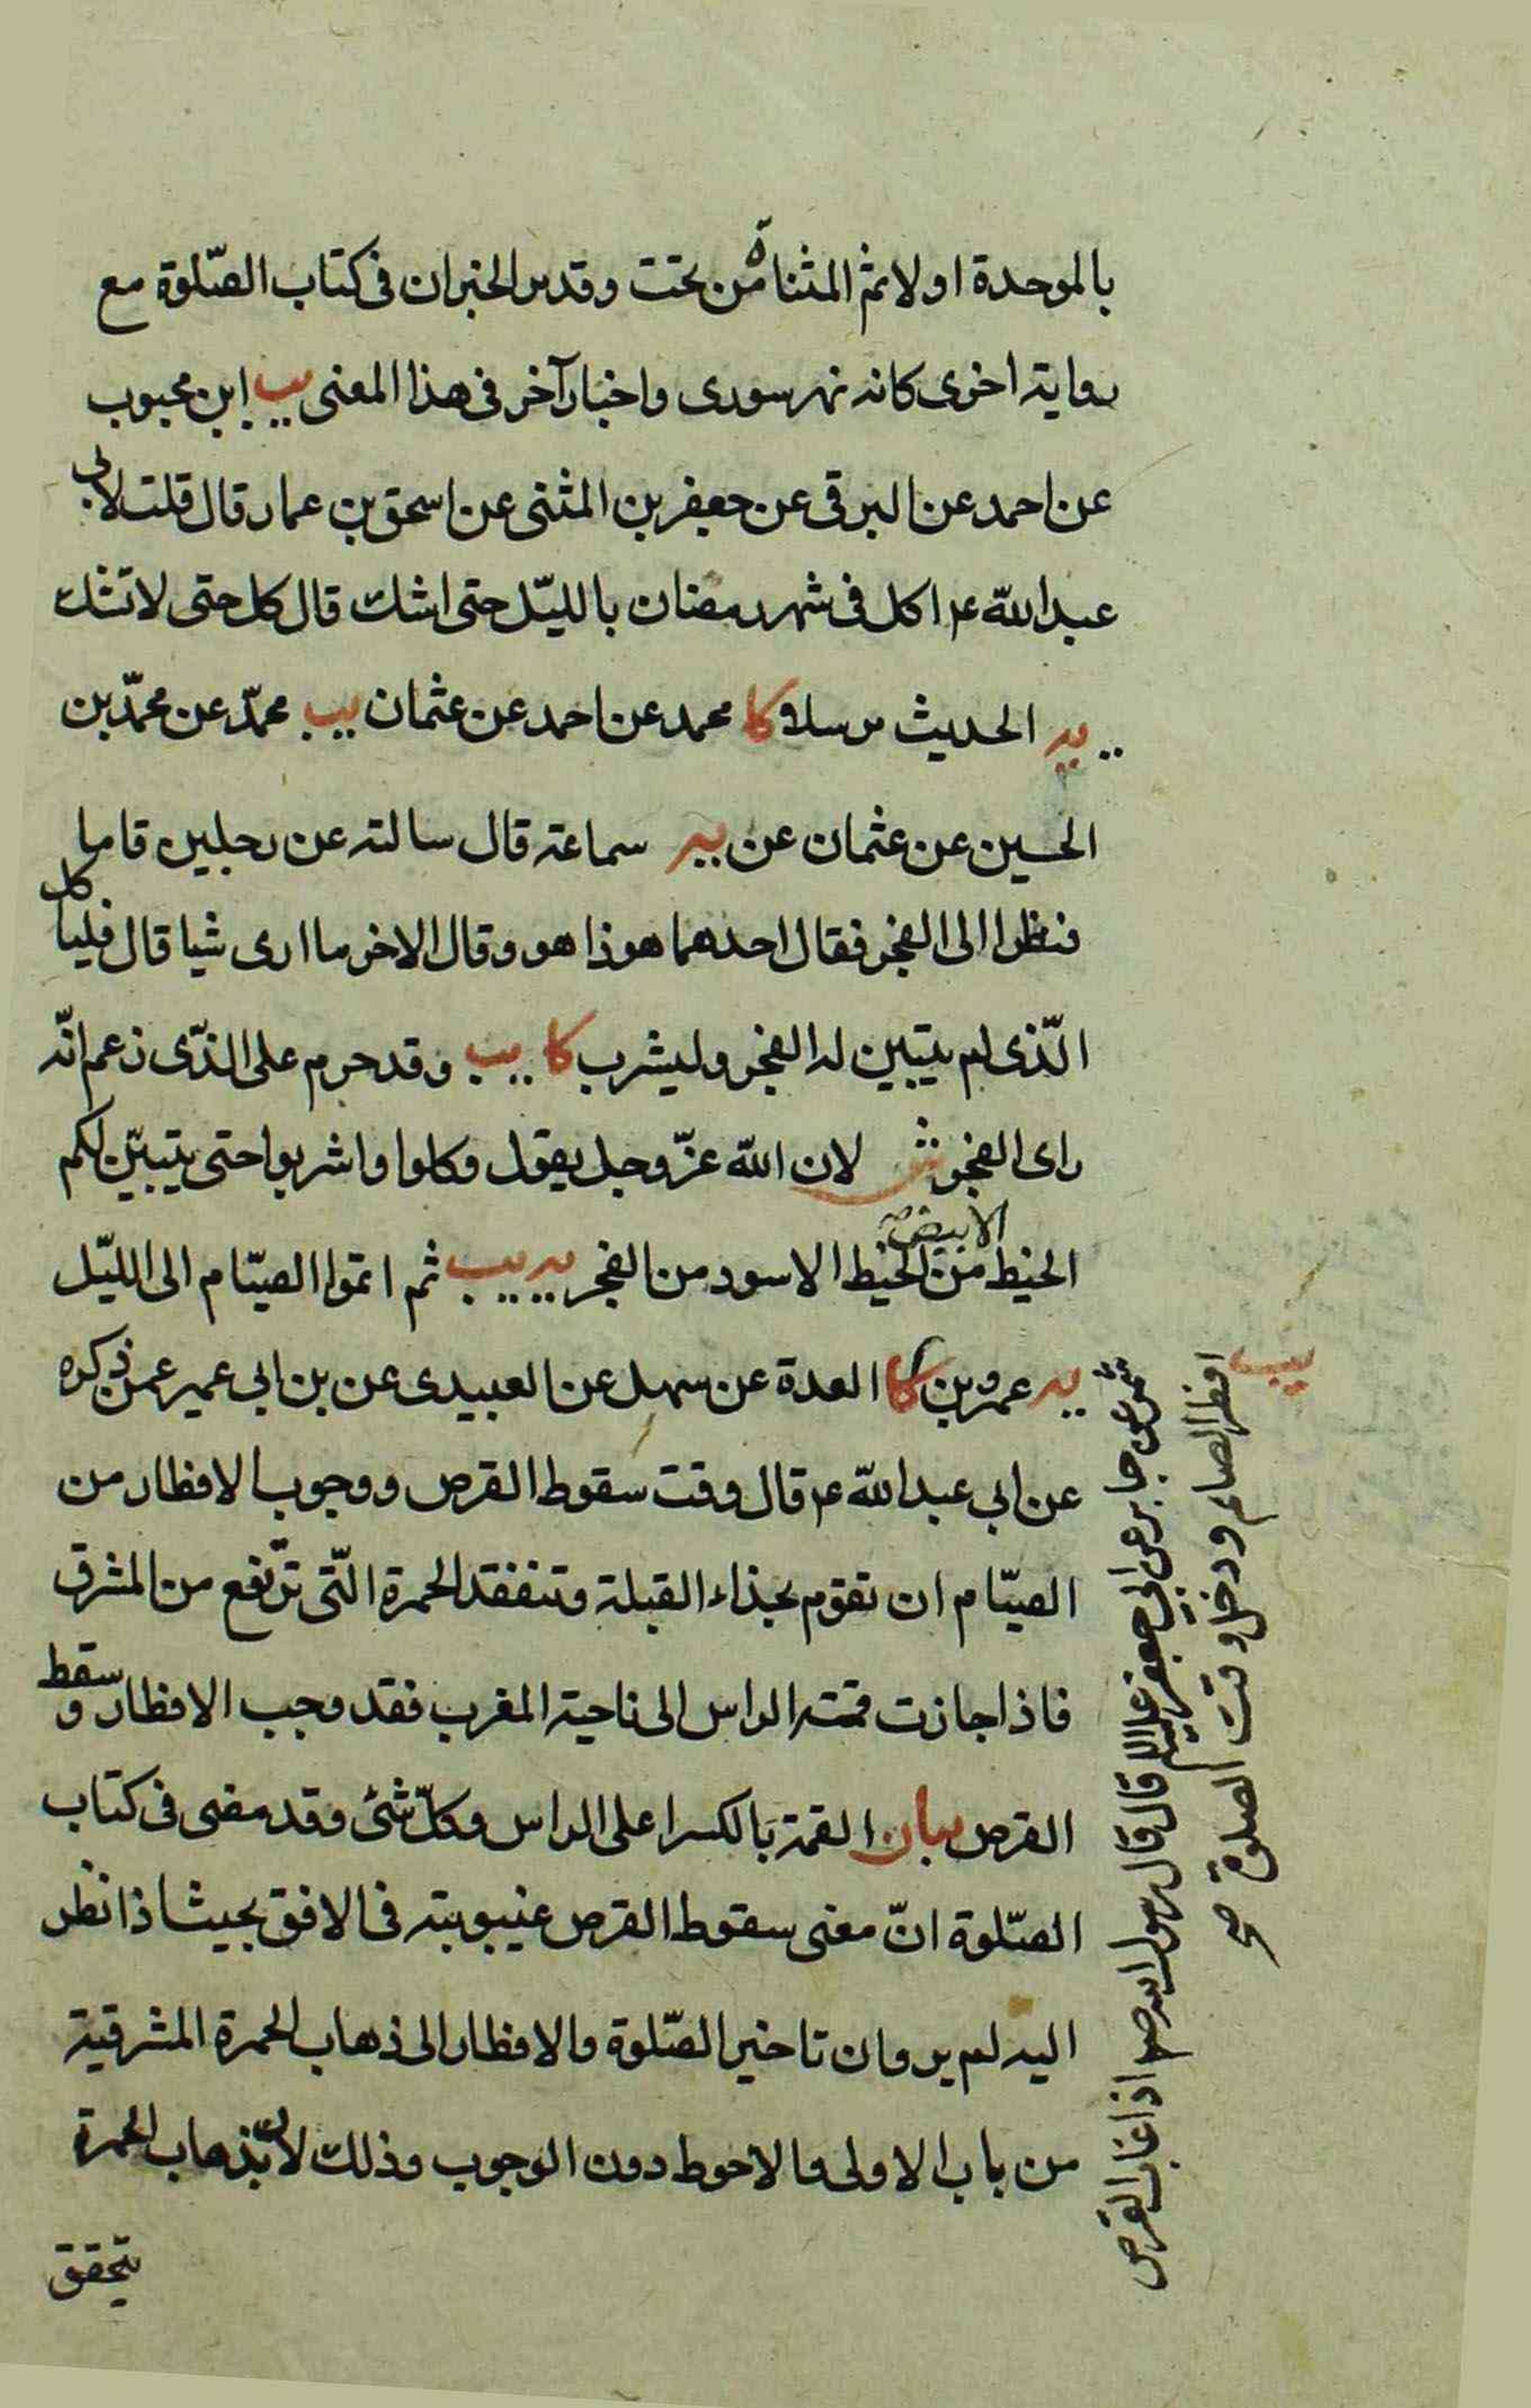 بالموحدة اولا ثم المثناة من تحت وقد مر الخبران فى كتاب الصّلوة مع
رواية اخرى كانه نهر سورى واخبار آخر فى هذا المعنى يب ابن محبوب
عن احمد عن البرقى عن جعفر بن المثنى عن اسحق بن عمار قال قلت لابى
عبد الله ع اكل فى شهر رمضان بالليّل حتى اشك قال كل حتى لا تشك
يه الحديث مرسلا كا محمد عن احمد عن عثمان يب محمّد عن محمّد بن
الحسين عن عثمان عن يه سماعة قال سالته عن رجلين قاما
فنظرا الى الفجر فقال احدهما هوذا هو وقال الاخر ما ارى شيا قال فلياكل
الّذى لم يتبين له الفجر وليشرب كا يب وقد حرم على الذّى زعم انّه
راى الفجر ش لان الله عزّ وجل يقول وكلوا واشربوا حتى يتبيّن لكم
الخيط الابيض من الخيط الاسود من الفجر يه يب ثم اتموا الصيّام الى الليّل
يه عمرو بن كا العدة عن سهل عن العبيدى عن بن ابى عمير عمن ذكره
عن ابى عبد الله ع قال وقت سقوط القرص ووجوب الافطار من
الصيّام ان تقوم بحذاء القبلة وتتفقد الحمرة الّتى ترّتفع من المشرق
فاذا جازت قمته الراس الى ناحية المغرب فقد وجب الافطار وسقط
القرص بيان القمة بالكسر اعلى الراس وكلّ شئ وقد مضى فى كتاب
الصّلوة انّ معنى سقوط القرص غيبوبته فى الافق بحيث اذا نظر
اليه لم ير وان تاخير الصّلوة والافطار الى ذهاب الحمرة المشرقية
من باب الاولى والاحوط دون الوجوب وذلك لان بّذهاب الحمرة
يتحقق
شمر عن جابر عن ابى جعفر عليه السلام قال قال رسول الله ص اذا غاب القرص
افطر الصائم ودخل وقت الصلوة صح
يب